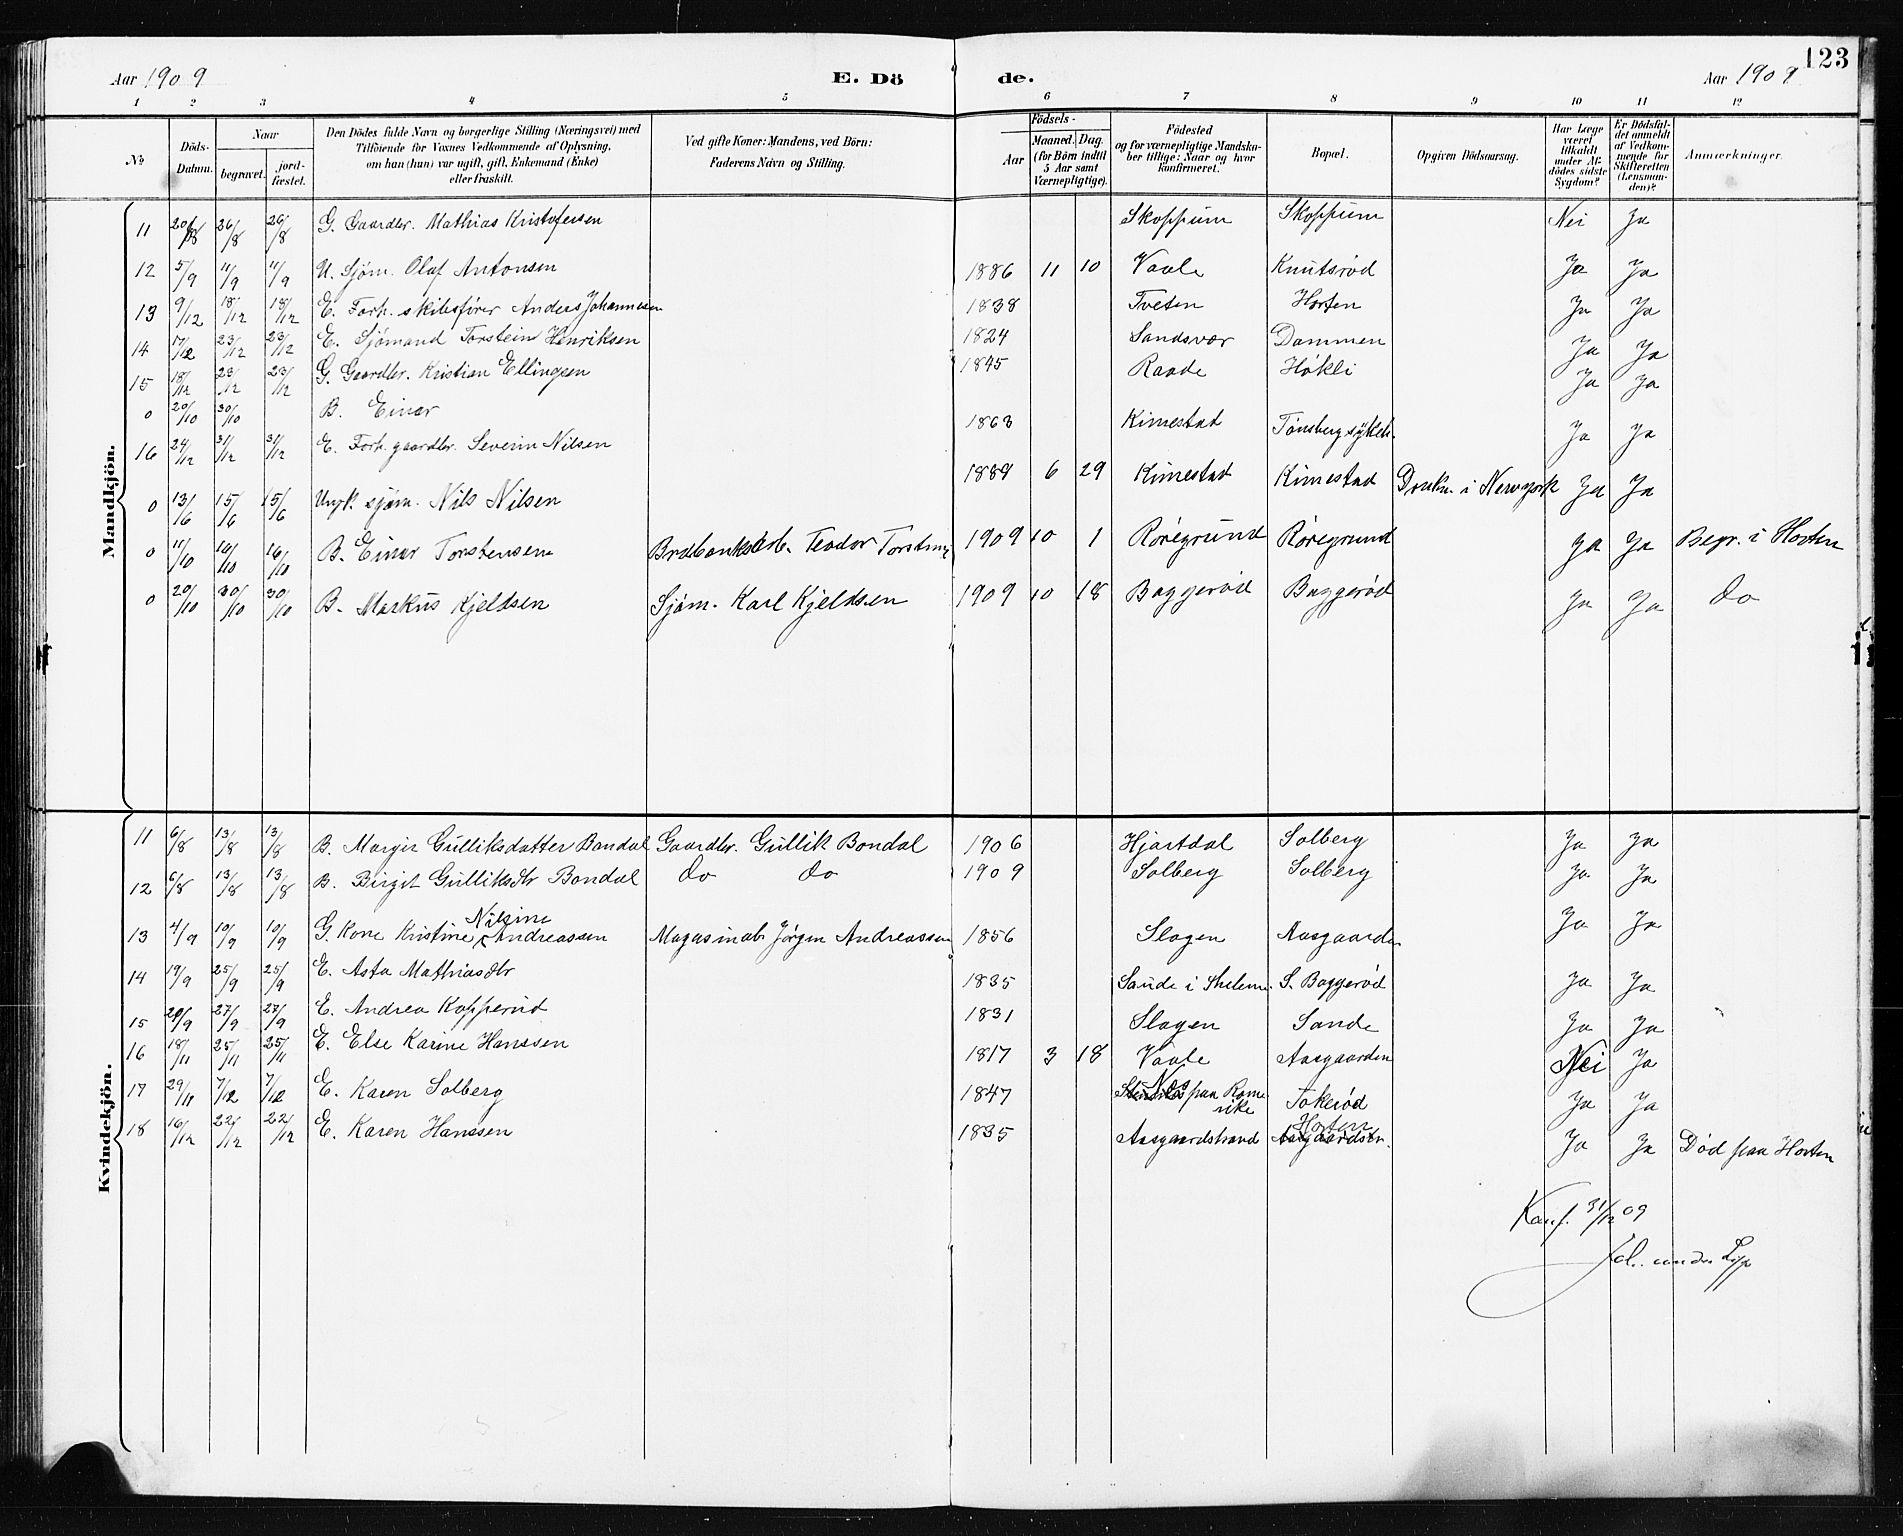 123
Aar 1909 E. Dö de. Aar 1909
1 2 3 4 5 6 7 8 9 10 11 12
No Döds-Datum. Naar begravet. jord-fæstet. Den Dödes fulde Navn og borgerlige Stilling (Næringsvei) med Tilföiende for Voxnes Vedkommende af Oplysning, om han (hun) var ugift, gift, Enkemand (Enke) eller fraskilt. Ved gifte Koner: Mandens, ved Börn: Faderens Navn og Stilling. Födsels- Aar Maaned. Dag. (for Börn indtil 5 Aar samt Værnepligtige). Födested og for værnepligtige Mandskaber tillige: Naar og hvor konfirmeret. Bopæl. Opgiven Dödsaarsag. Har Læge været tilkaldt under Afdödes sidste Sygdom? Er Dödsfaldet anmeldt af Vedkommende for Skifteretten (Lensmanden)? Anmærkninger.
Mandkjön.
11 20/8 26/8 26/8 G. Gaardbr. Mathias Kristofersen Skoppum Skoppum Nei Ja
12 5/9 11/9 11/9 U. Sjøm. Olaf Antonsen 1886 11 10 Vaale Knutsrød Ja Ja
13 9/12 18/12 18/12 E. Forh. skibsfører Anders Johannesen 1838 Tveten Horten Ja Ja
14 17/12 23/12 23/12 E. Sjømand Torstein Henriksen 1824 Sandsvær Dammen Ja Ja
15 18/12 23/12 23/12 G. Gaardbr. Kristian Ellingsen 1845 Raade Høkli Ja Ja
0 20/10 30/10 B. Einar
16 24/12 31/12 31/12 E. Forh. gaardbr. Severin Nilsen 1863 Kimestad Tønsberg sykeh. Ja Ja
0 13/6 15/6 15/6 Ungk. sjøm. Nils Nilsen 1889 6 29 Kimestad Kimestad Drukn. i Newyork Ja Ja
0 11/10 16/10 16/10 B. Einar Torstensen Teodor Torstensen 1909 10 1 Røregrund Røregrund Ja Ja Begr. i Horten
0 20/10 30/10 30/10 B. Markus Kjeldsen Sjøm. Karl Kjeldsen 1909 10 18 Baggerød Baggerød Ja Ja do
Kvindekjön.
11 6/8 13/8 13/8 B. Margit Gulliksdatter Bondal Gaardbr. Gullik Bondal 1906 Hjartdal Solberg Ja Ja
12 6/8 13/8 13/8 B. Birgit Gulliksdtr Bondal do do 1909 Solberg Solberg Ja Ja
13 4/9 10/9 10/9 G. Kone Kristine Nilsine Andreassen Magasinab. Jørgen Andreassen 1856 Slagen Aasgaarden Ja Ja
14 19/9 25/9 25/9 E. Asta Mathiasdtr 1835 Saude i Thelem. S. Baggerød Ja Ja
15 20/9 27/9 27/9 E. Andrea Kopperud 1831 Slagen Sande Ja Ja
16 18/11 25/11 25/11 E. Else Karine Hanssen 1817 3 18 Vaale Aasgaarden Nei Ja
17 29/11 7/12 7/12 E. Karen Solberg 1847 Nes paa Romerike Tokerød Ja Ja
18 16/12 22/12 22/12 E. Karen Hanssen 1835 Aasgaardstrand Horten Aasgaardstr. Ja Ja Død paa Horten
Konf. 31/12 09